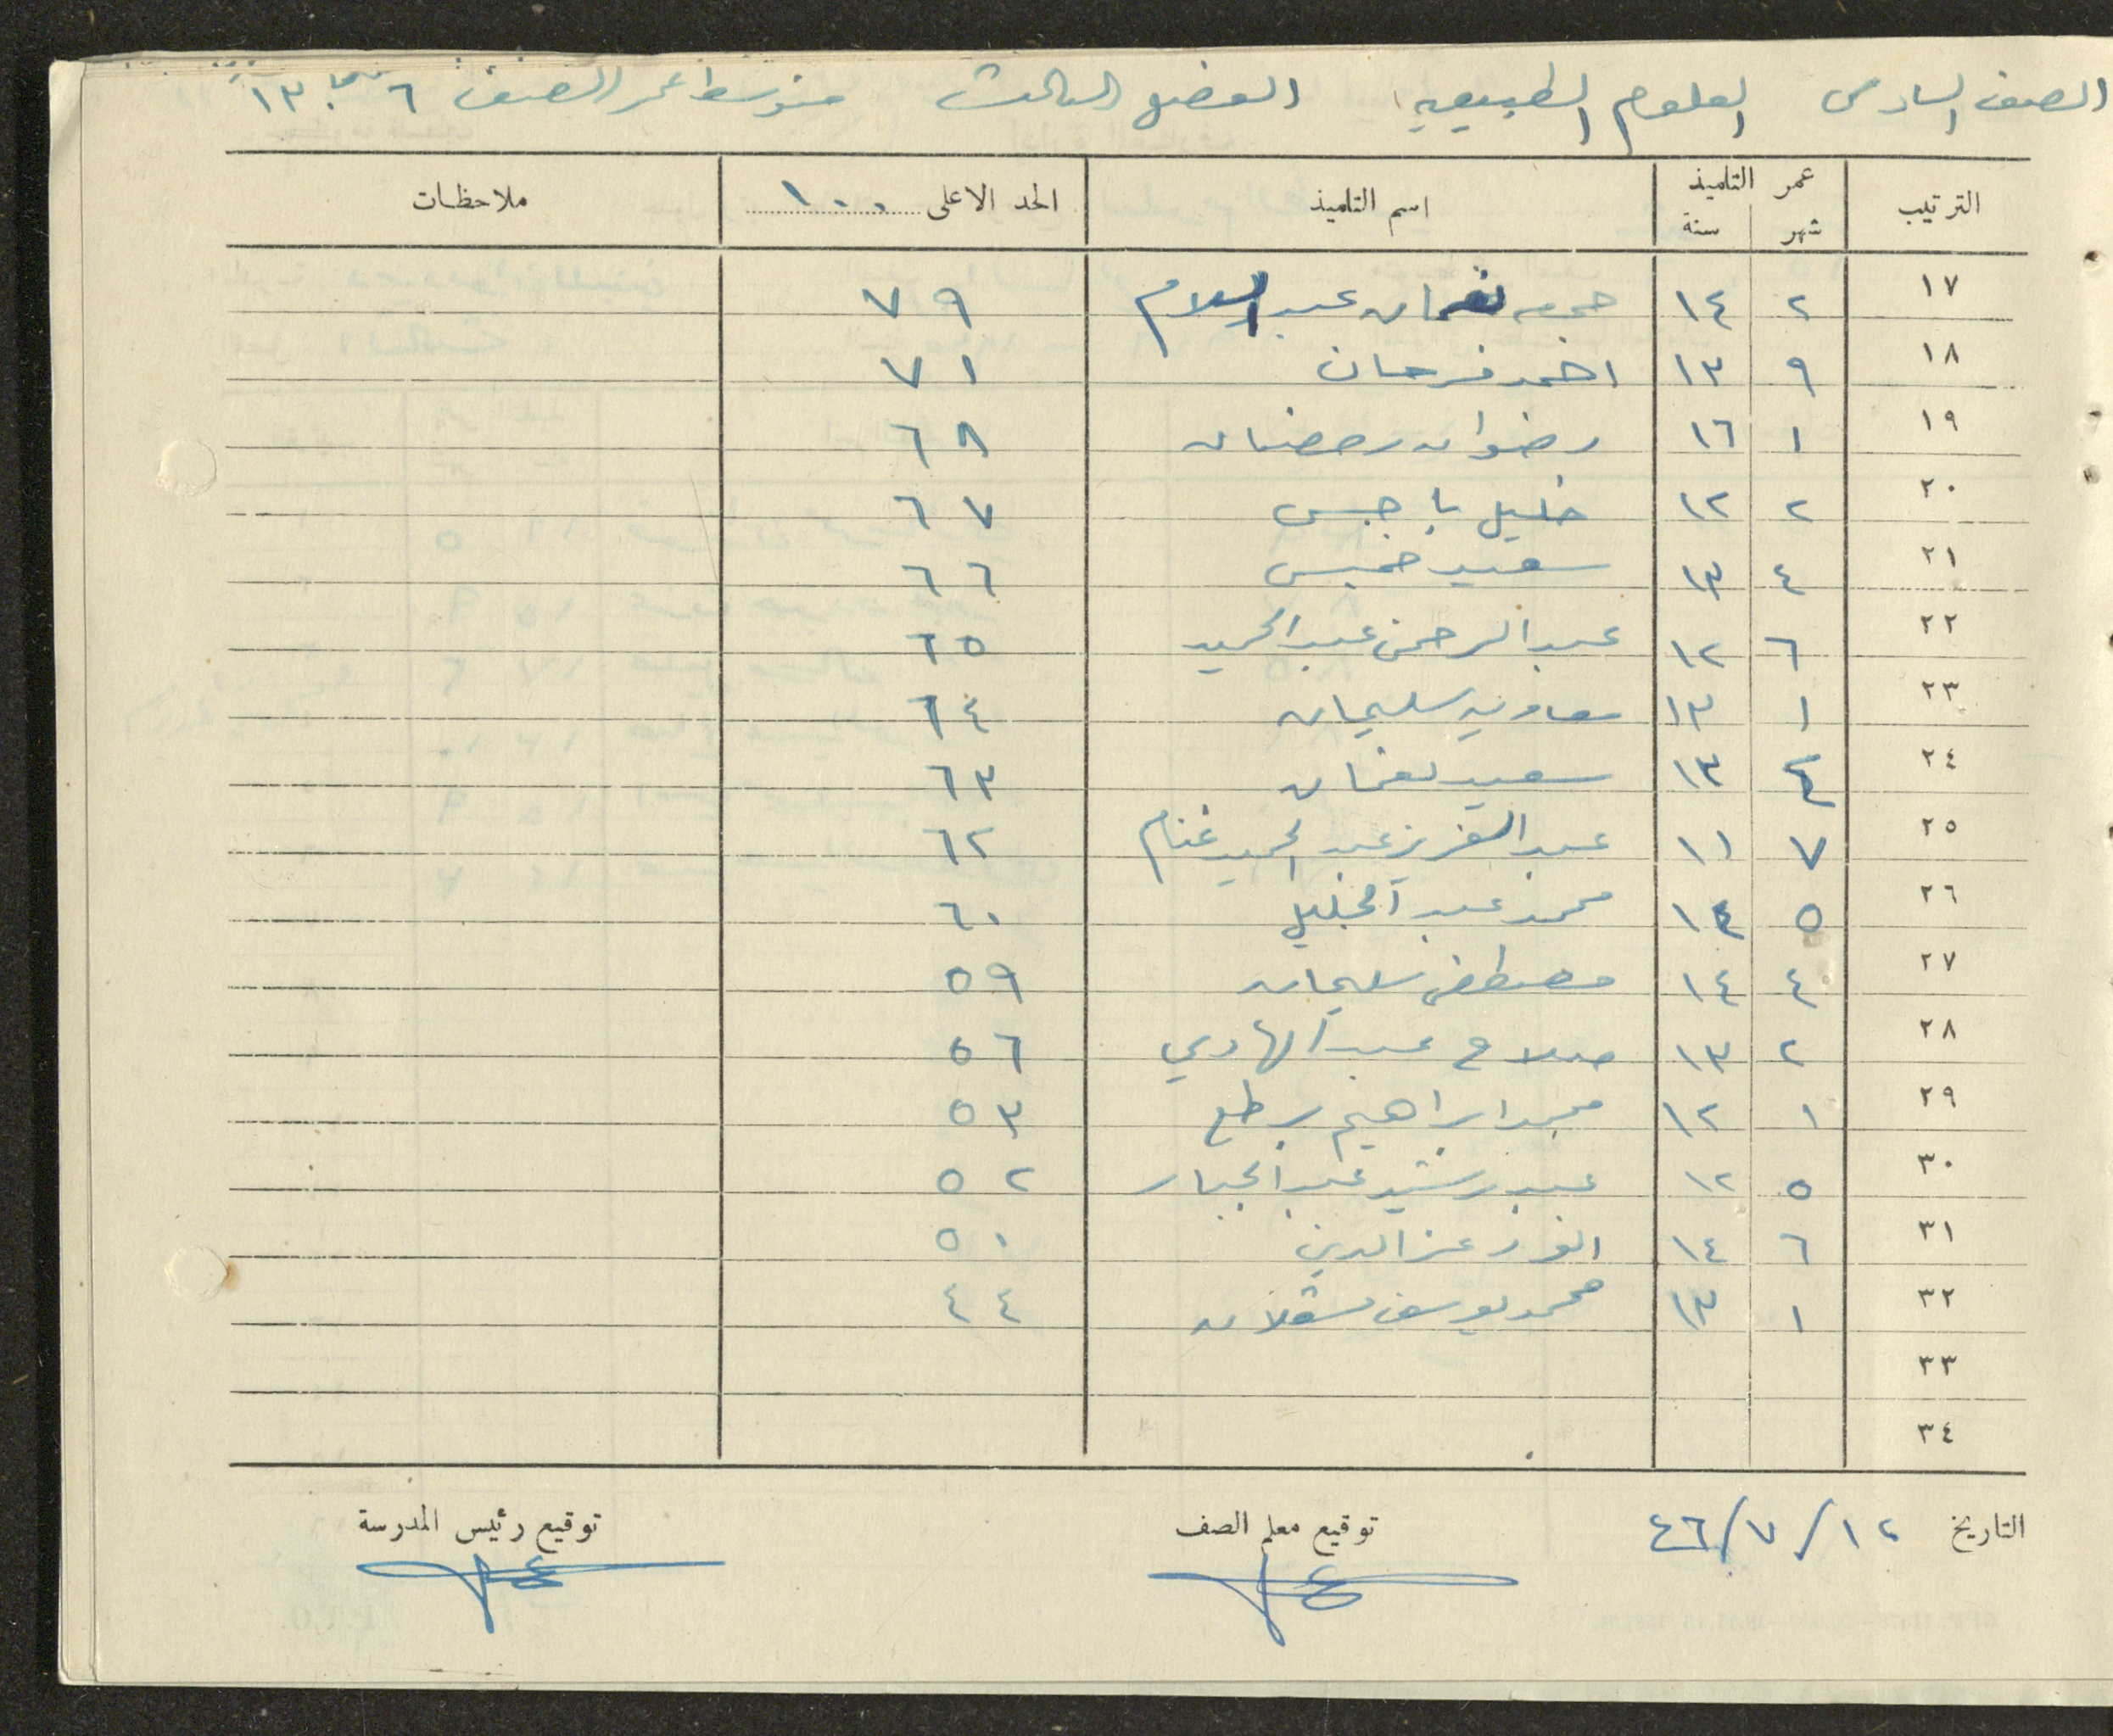 الصف السادس العلوم الطبيعيه الفصل الثالث متوسط عمر الصف ٦ ١٣
الترتيب عمر التلميذ اسم التلميذ الحد الاعلى ١٠٠ ملاحظات
شهر سنة
١٧ ٢ ١٤ جمعه نعمان عبد السلام ٧٩
١٨ ٩ ١٣ احمد فرحان ٧١
١٩ ١ ١٦ رضوان رمضان ٦٨
٢٠ ٢ ١٢ خليل با جس ٦٧
٢١ ٤ ١٣ سعيد خميس ٦٦
٢٢ ٦ ١٢ عبد الرحمن عبد الحميد ٦٥
٢٣ ١ ١٣ معاويه سليمان ٦٤
٢٤ ١٣ سعيد نعمان ٦٣
٢٥ ٧ ١١ عبد العزيز عبد الحميد غنام ٦٢
٢٦ ٥ ١٤ محمد عبد الجليل ٦٠
٢٧ ٤ ١٤ مصطفى سليمان ٥٩
٢٨ ٢ ١٣ صلاح عبد الهادي ٥٦
٢٩ ١ ١٢ محمد ابراهيم ٥٣
٣٠ ٥ ١٢ عبد رشيد عبد الجبار ٥٢
٣١ ٦ ١٤ انور عز الدين ٥٠
٣٢ ١ ١٣ محمد يوسف ٤٤
٣٣
٣٤
التاريخ ١٢/٧/٤٦ توقيع معلم الصف توقيع رئيس المدرسة